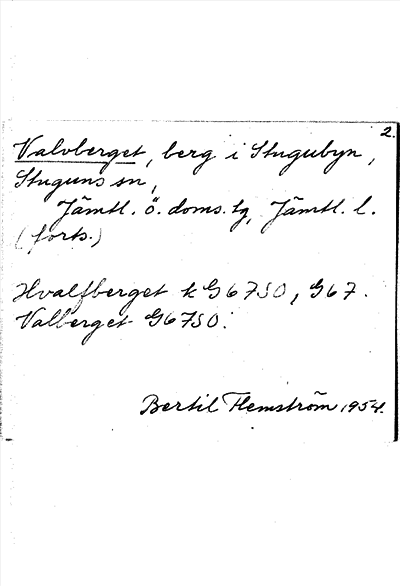 2.
Valvberget, berg i Stugubyn,
Stuguns sn,
Jämtl. ö. doms. tg, Jämtl. l.
(forts.)
Hvalfberget k G67SO, G67.
Valberget G67SO.
Bertil Flemström 1954.